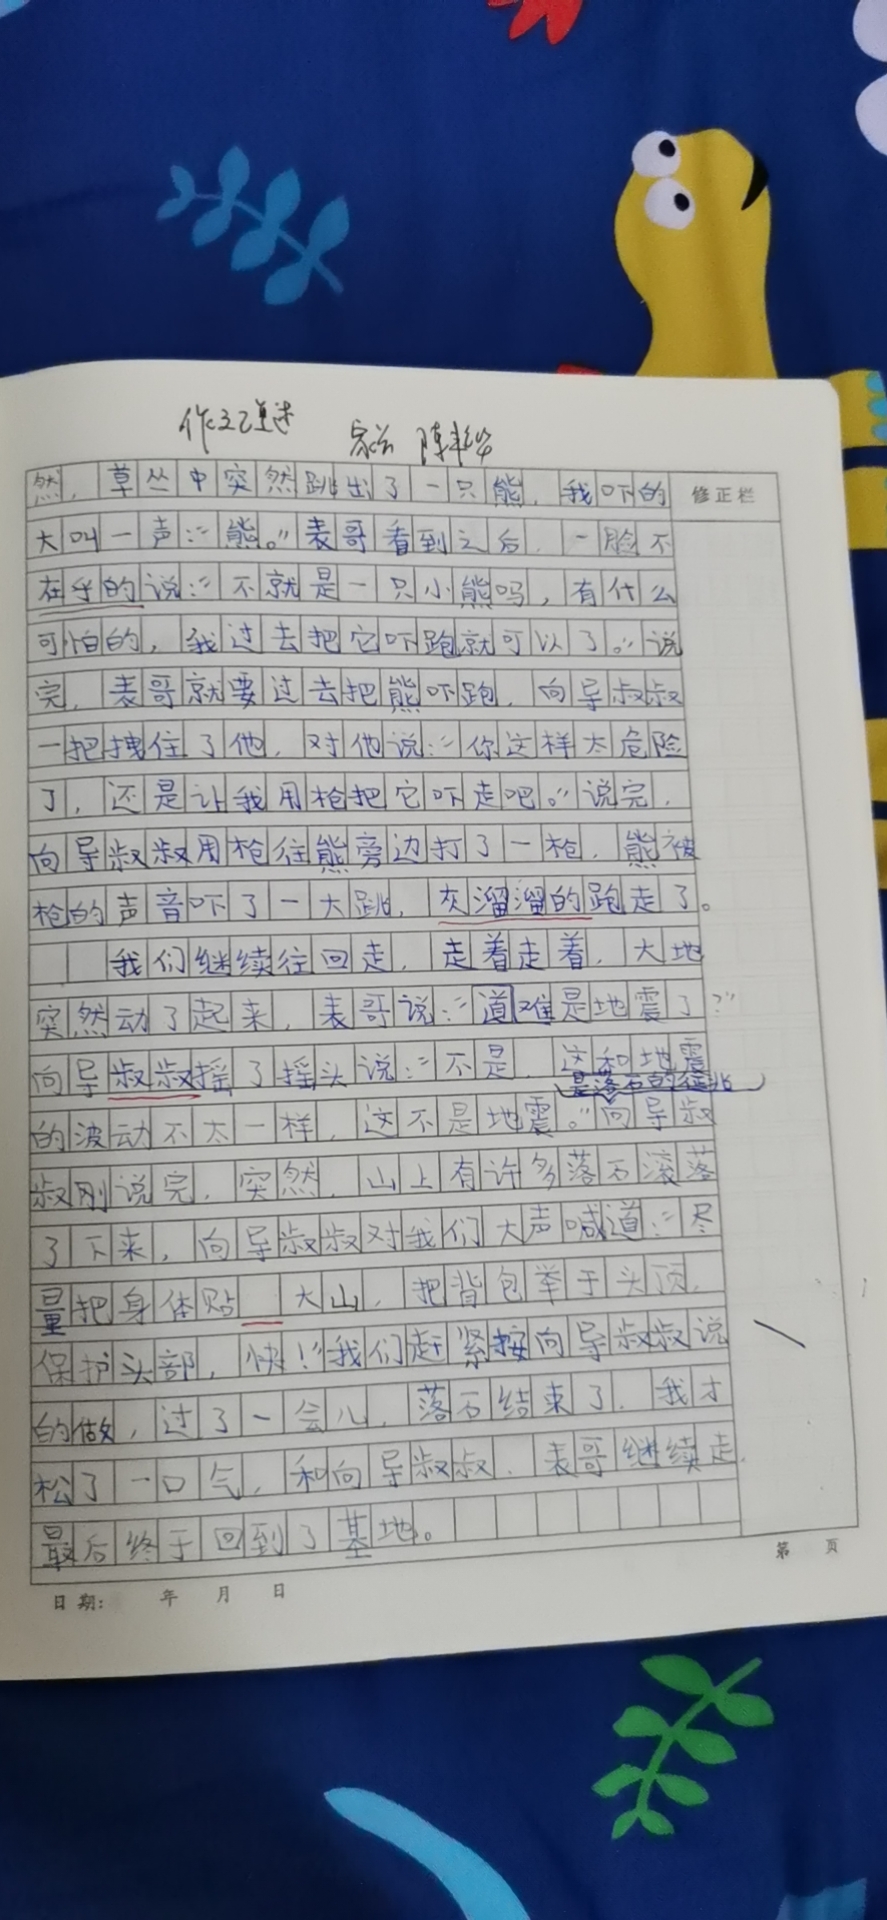 作文已通过
家长 陈
然，草丛中突然跳出了一只熊，我吓的
修正栏
大叫一声：“熊。”表哥看到之后，一脸不
在乎的说：“不就是一只小熊吗，有什么
可怕的，我过去把它吓跑就可以了。”说
完，表哥就要过去把熊吓跑，向导叔叔
一把拽住了他，对他说：“你这样太危险
了，还是让我用枪把它吓走吧。”说完，
向导叔叔用枪往熊旁边打了一枪，熊被
枪的声音吓了一大跳，灰溜溜的跑走了。
我们继续往回走，走着走着，大地
突然动了起来，表哥说：“道难是地震了？”
向导叔叔摇了摇头说：“不是，这和地震
是落石的征兆
的波动不太一样，这不是地震。”向导叔
叔刚说完，突然，山上有许多落石滚落
了下来，向导叔叔对我们大声喊道：“尽
量把身体贴 大山，把背包举于头顶，
保护头部，快！”我们赶紧按向导叔叔说
的做，过了一会儿，落石结束了，我才
松了一口气，和向导叔叔、表哥继续走，
最后终于回到了基地。
日期： 年 月 日
第 页